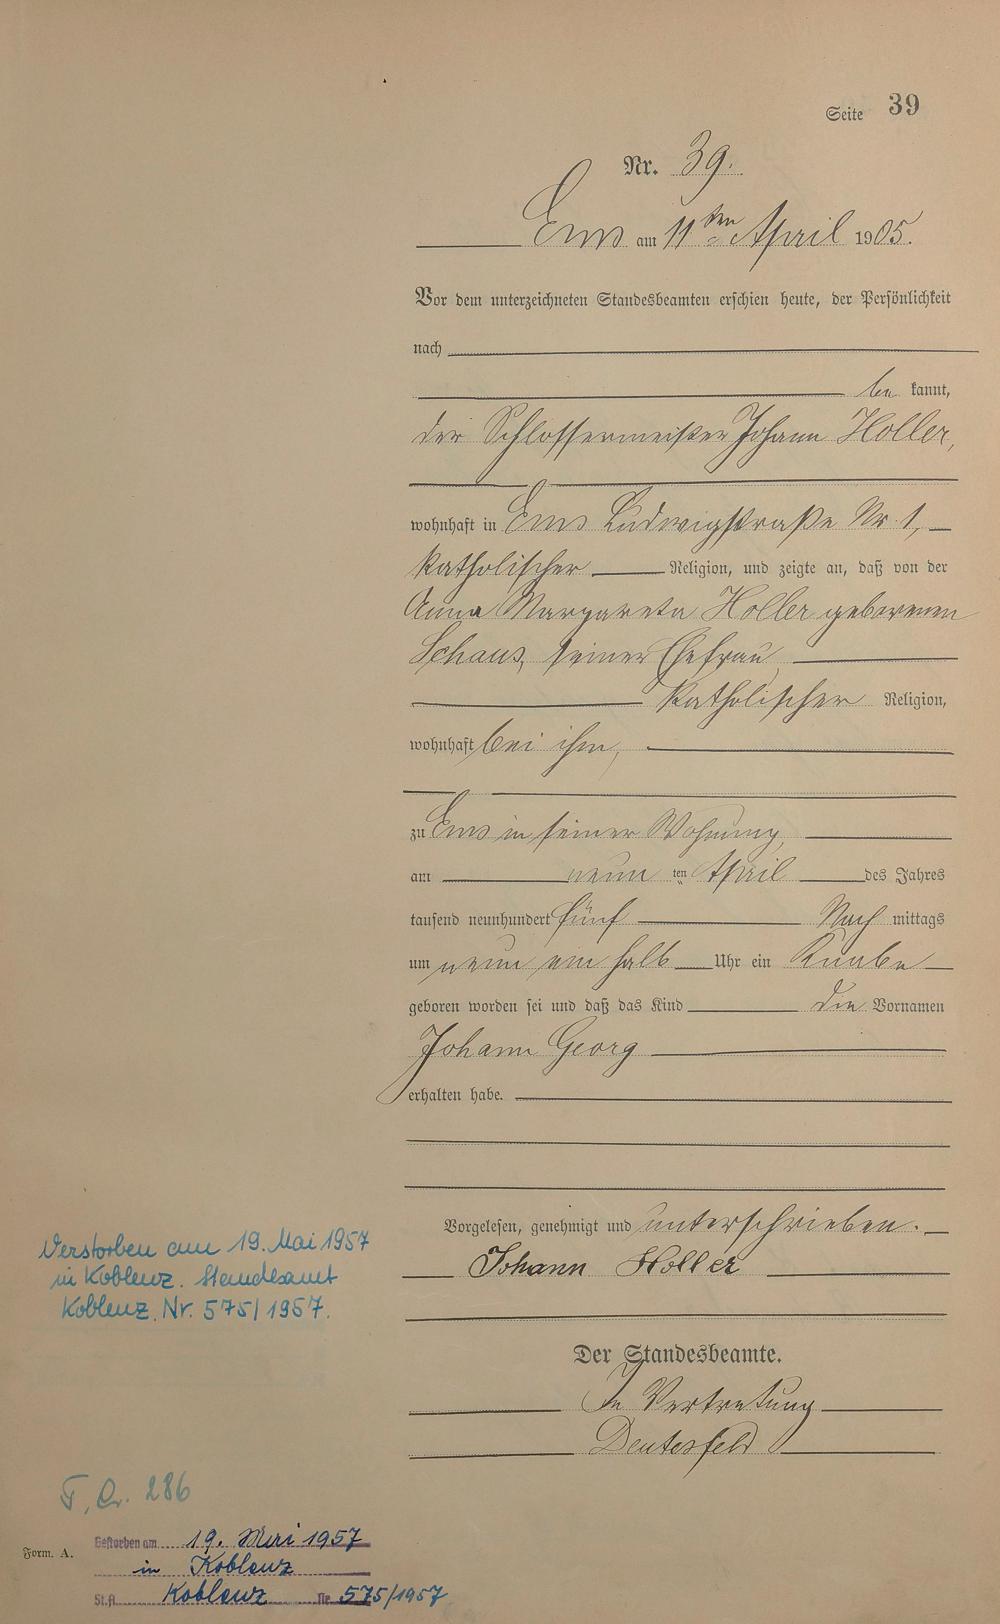 Seite 39
Nr. 39.
Ems am 11ten April 1905.
Vor dem unterzeichneten Standesbeamten erschien heute, der Persönlichkeit
nach
be kannt,
der Schlossermeister Johann Holler,
wohnhaft in Ems Ludwigstraße Nr. 1,
katholischer Religion, und zeigte an, daß von der
Anna Margareta Holler geborenen
Schaus, seiner Ehefrau,
katholischer Religion,
wohnhaft bei ihm,
zu Ems in seiner Wohnung,
am neun ten April des Jahres
tausend neunhundert fünf Nach mittags
um neun ein halb Uhr ein Knabe
geboren worden sei und daß das Kind die Vornamen
Johann Georg
erhalten habe.
Vorgelesen, genehmigt und unterschrieben.
Johann Holler
Der Standesbeamte.
In Vertretung
Verstorben am 19. Mai 1957
in Koblenz. Standesamt
Koblenz. Nr. 575/1957.
286
Form. A.
Gestorben am 19. Mai 1957
in Koblenz
St.A. Koblenz Nr. 575/1957